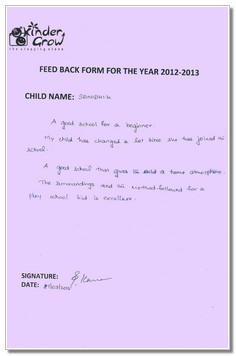 Kinder
Grow
the stepping stone
FEED BACK FORM FOR THE YEAR 2012-2013
CHILD NAME:
A good school for a beginner.
My child has changed a lot since she has joined in
school.
A good school that gives a child a home atmosphere.
The surroundings and the method followed for a
play school kid is excellent.
SIGNATURE:
DATE: